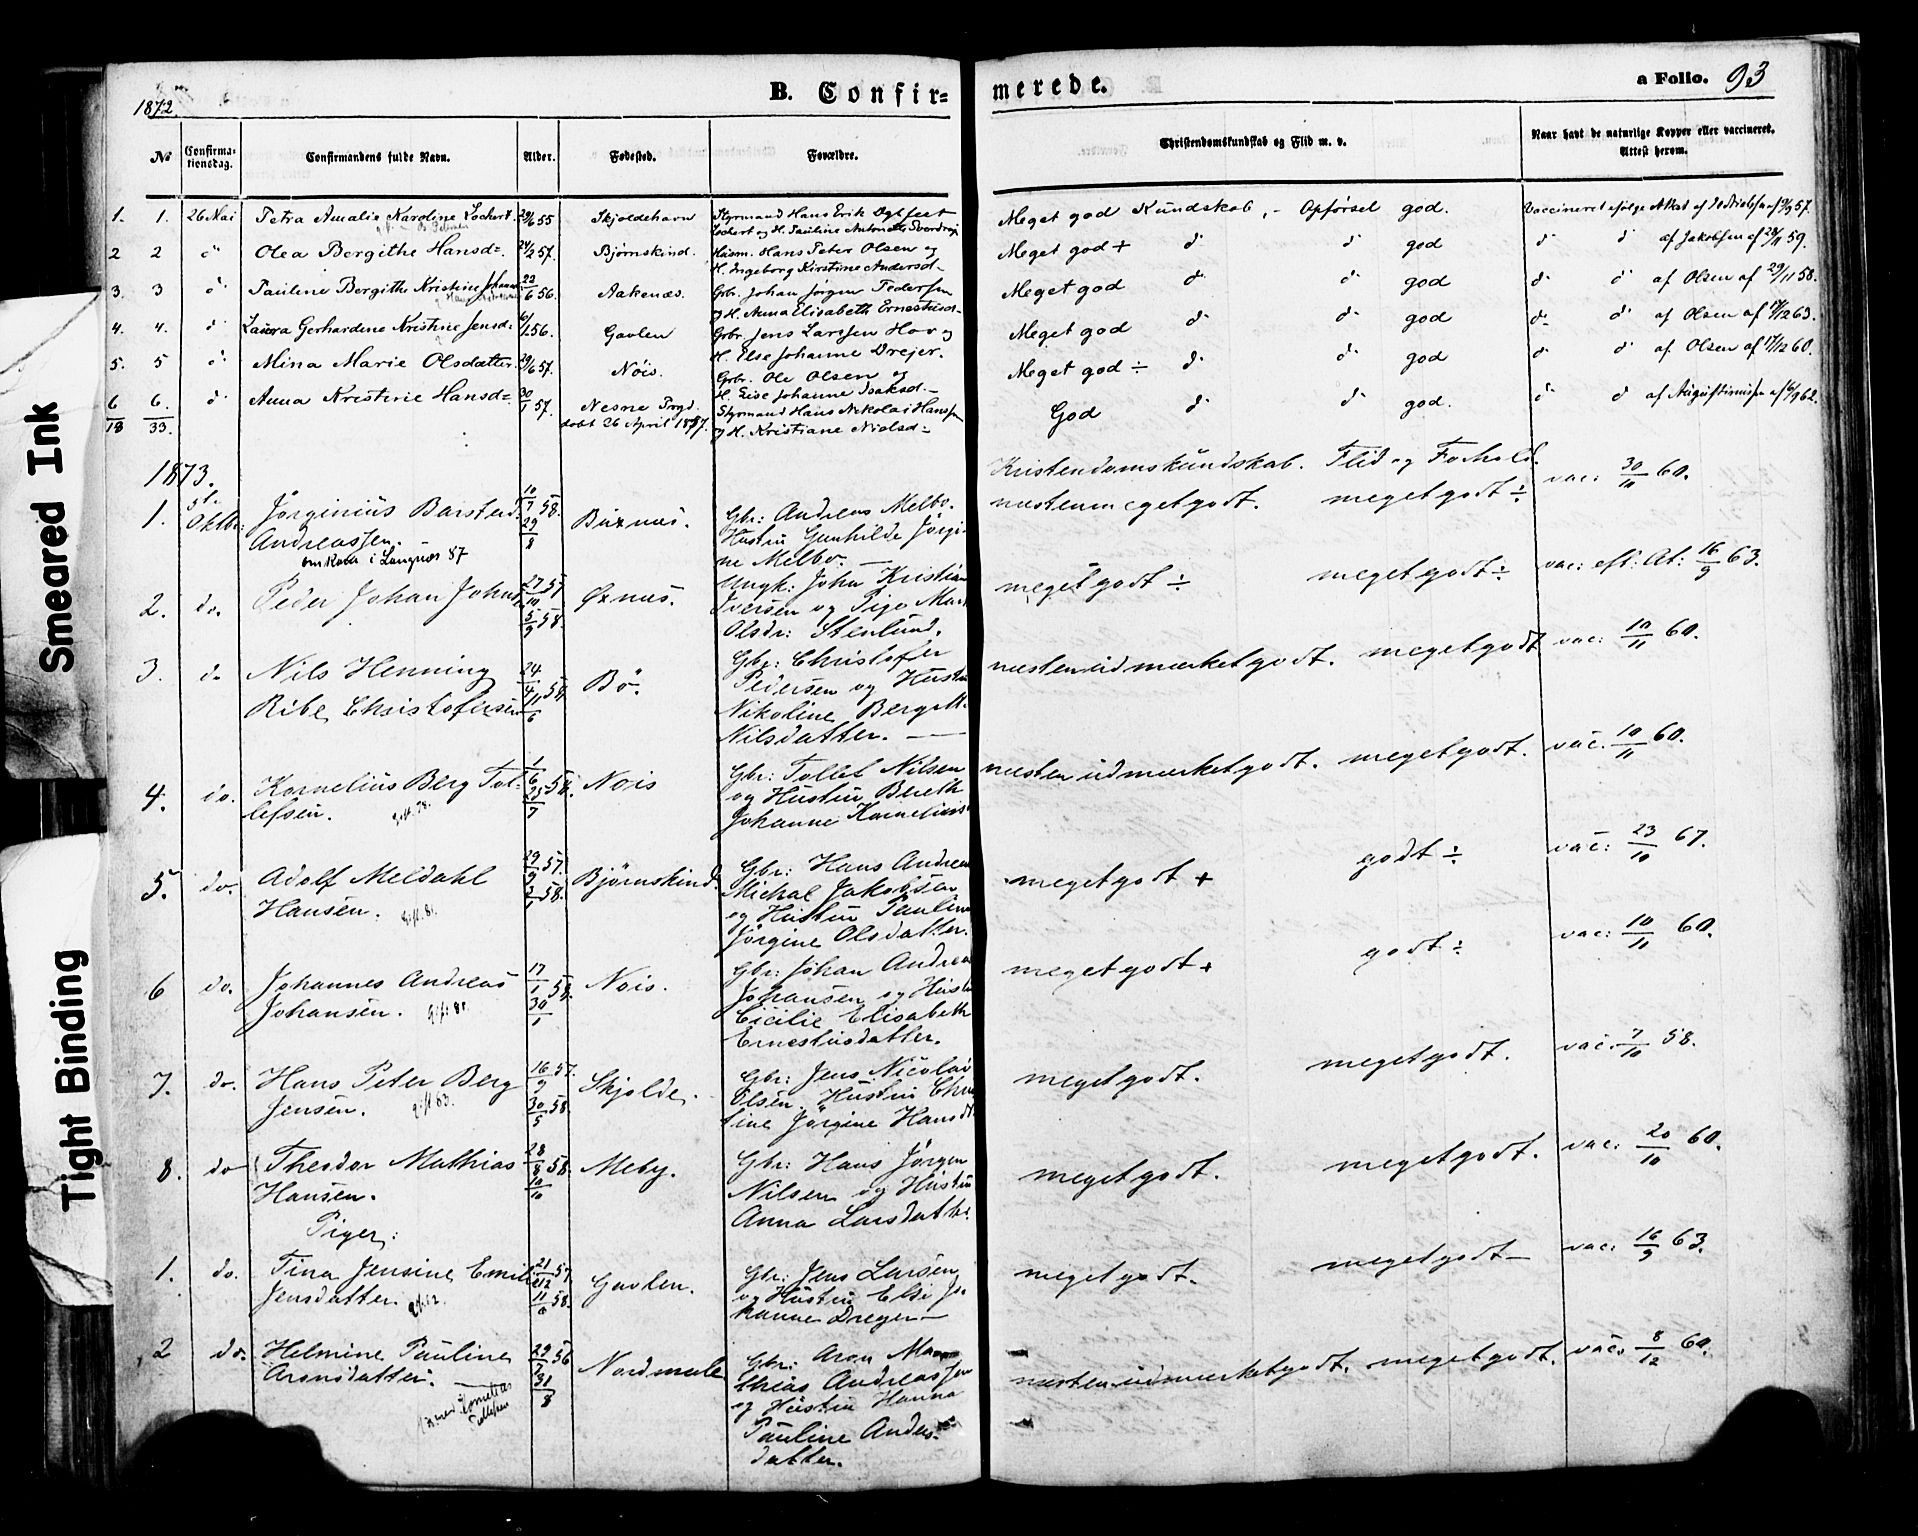 Smeared Ink
Tight Binding
1872.
B. Confir=
merede.
a Folio. 93
No
Confirma-
tionsdag.
Confirmandens fulde Navn.
Alder.
Fødested.
Forældre.
Christendomskundskab og Flid m. v.
Naar havt de naturlige Kopper eller vaccineret.
Attest herom.
1. 1. 26 Mai Petra Amalie Karoline Lockert. 29/6 55 Skjoldehavn Styrmand Hans Erik
Lockert og H. Pauline Antonette
Meget god Kundskab, - Opførsel god. Vaccineret ifølge Attest af
2 2 d° Olea Bergithe Hansd= 24/2 57. Bjørnskind. Husm. Hans Peter Olsen og
H. Ingeborg Kirstine Andersd=
Meget god + d° d° god d° d° af Jakobsen af 28/11 59.
3. 3 d° Pauline Bergithe Kristine 22/6 56. Aakenæs. Gbr. Johan Jørgen Pedersen
og H. Anna Elisabeth Ernestusd=
Meget god d° d° god d° d° af Olsen af 29/11 58.
4. 4. d° Laura Gerhardene Kristine Jensd= 6/1 56. Gavlen Grbr. Jens Larssen Hov og
H. Else Johanne Drejer.
Meget god d° d° god d° d° af Olsen af 17/12 63.
5. 5 d° Mina Marie Olsdatter. 29/6 57. Nøis. Grbr. Ole Olsen og
H. Else Johanne Isaksd.-
Meget god ÷ d° d° god d° d° af Olsen af 17/12 60.
6 6. d° Anna Kristine Hansd= 30/1 57. Nesne Prgd. Styrmand Hans Nikolai Hanssen
18 33. døbt 26 April 1857. og H. Kristiane Nielsd=
God d° d° god. d° d° af Augustinussen af 6/9 62.
1873.
Kristendomskundskab. Flid og Forhold.
1. Oktbr: Jørginius Barsted 10/7 58. Buxnæs. Gbr: Andreas Melbo.
Andreassen. 29/8 Hustru Gunhilde Jørgi-
omkom i Langnes 87 ne Melbo.
næsten megetgodt. megetgodt ÷ vac: 30/11 60.
2. do. Peder Johan Johns 27/10 57 Øxnæs. Ungk: John Kristian
5/9 58. Iversen og Pige Mart
Olsdr: Stenlund.
megetgodt ÷ megetgodt ÷ vac: eft: At: 16/9 63.
3. do Nils Henning 24/4 58. Bø. Gbr: Christofer
Ribe Christofersen 11/6 Pedersen og Hustru
Nikoline Bergitt
Nilsdatter.
næsten udmærketgodt. megetgodt vac: 10/11 60.
4. do. Kornelius Berg Tol- 1/6 58. Nøis Gbr: Tollef Nilsen
lefsen. gift 78. 25/7 og Hustru Bereth
Johanne Kornelius
næsten udmærketgodt. megetgodt. vac. 10/11 60.
5. do. Adolf Meldahl 29/9 57. Bjørnskind. Gbr: Hans Andrea
Hansen. gift 81. 2/1 58. Michal Jakobsen
og Hustru Pauline
Jørgine Olsdatter.
megetgodt + godt ÷ vac: 23/10 67.
6 do. Johannes Andreas 17/1 58. Nøis. Gbr: Johan Andrea
Johansen. gift 81. 30/1 Johansen og Hustr
Cicilie Elisabeth
Ernestusdatter.
megetgodt + godt ÷ vac: 10/11 60.
7. do. Hans Peter Berg 16/9 57. Skjolde. Gbr: Jens Nicolai
Jensen. gift 63. 30/5 58. Olsen. Hustru Chri
tine Jørgine Hansdt
megetgodt. megetgodt. vac. 7/10 58.
8. do Theodor Mathias 28/8 58. Meby. Gbr: Hans Jørgen
Hansen. 10/10 Nilsen og Hustru
Anna Larsdatte.
megetgodt. megetgodt. vac: 20/10 60.
Piger:
1. do. Tina Jensine Emili 21/12 57. Gavlen. Gbr: Jens Larsen
Jensdatter. 11/6 58. og Hustru Else Jo
hanne Dreyer
megetgodt. megetgodt vac: 16/9 63.
2 do. Helmine Pauline 29/7 56 Nordmele Gbr: Aron Ma
Aronsdatter. 31/8 thias Andreassen
og Hustru Hanna
Pauline Anders-
datter.
næsten udmærketgodt. megetgodt. vac. 8/12 60.